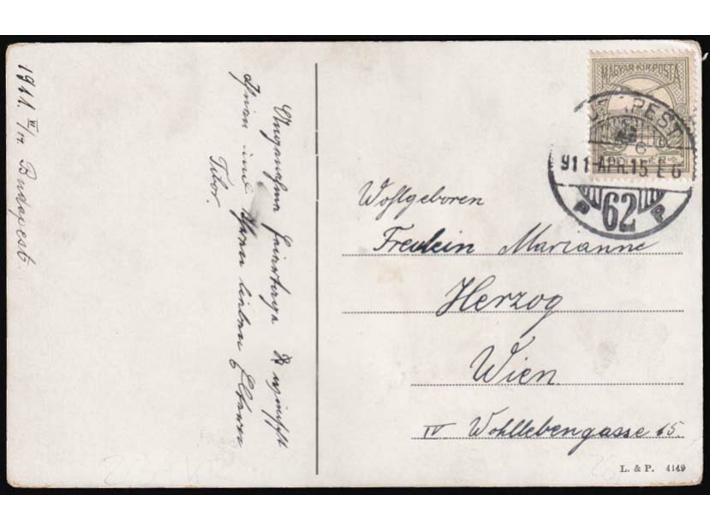 1911. IV/14 Budapest.
Angenehme Feiertage wünscht
Ihnen und Ihren lieben Eltern
Tibor.
MAGYAR KIR. POSTA
BUDAPEST
911 APR. 15 E 6
62
P P
Wohlgeboren
Freulein Marianne
Herzog
Wien
IV Wohllebengasse 15.
L. & P. 4149